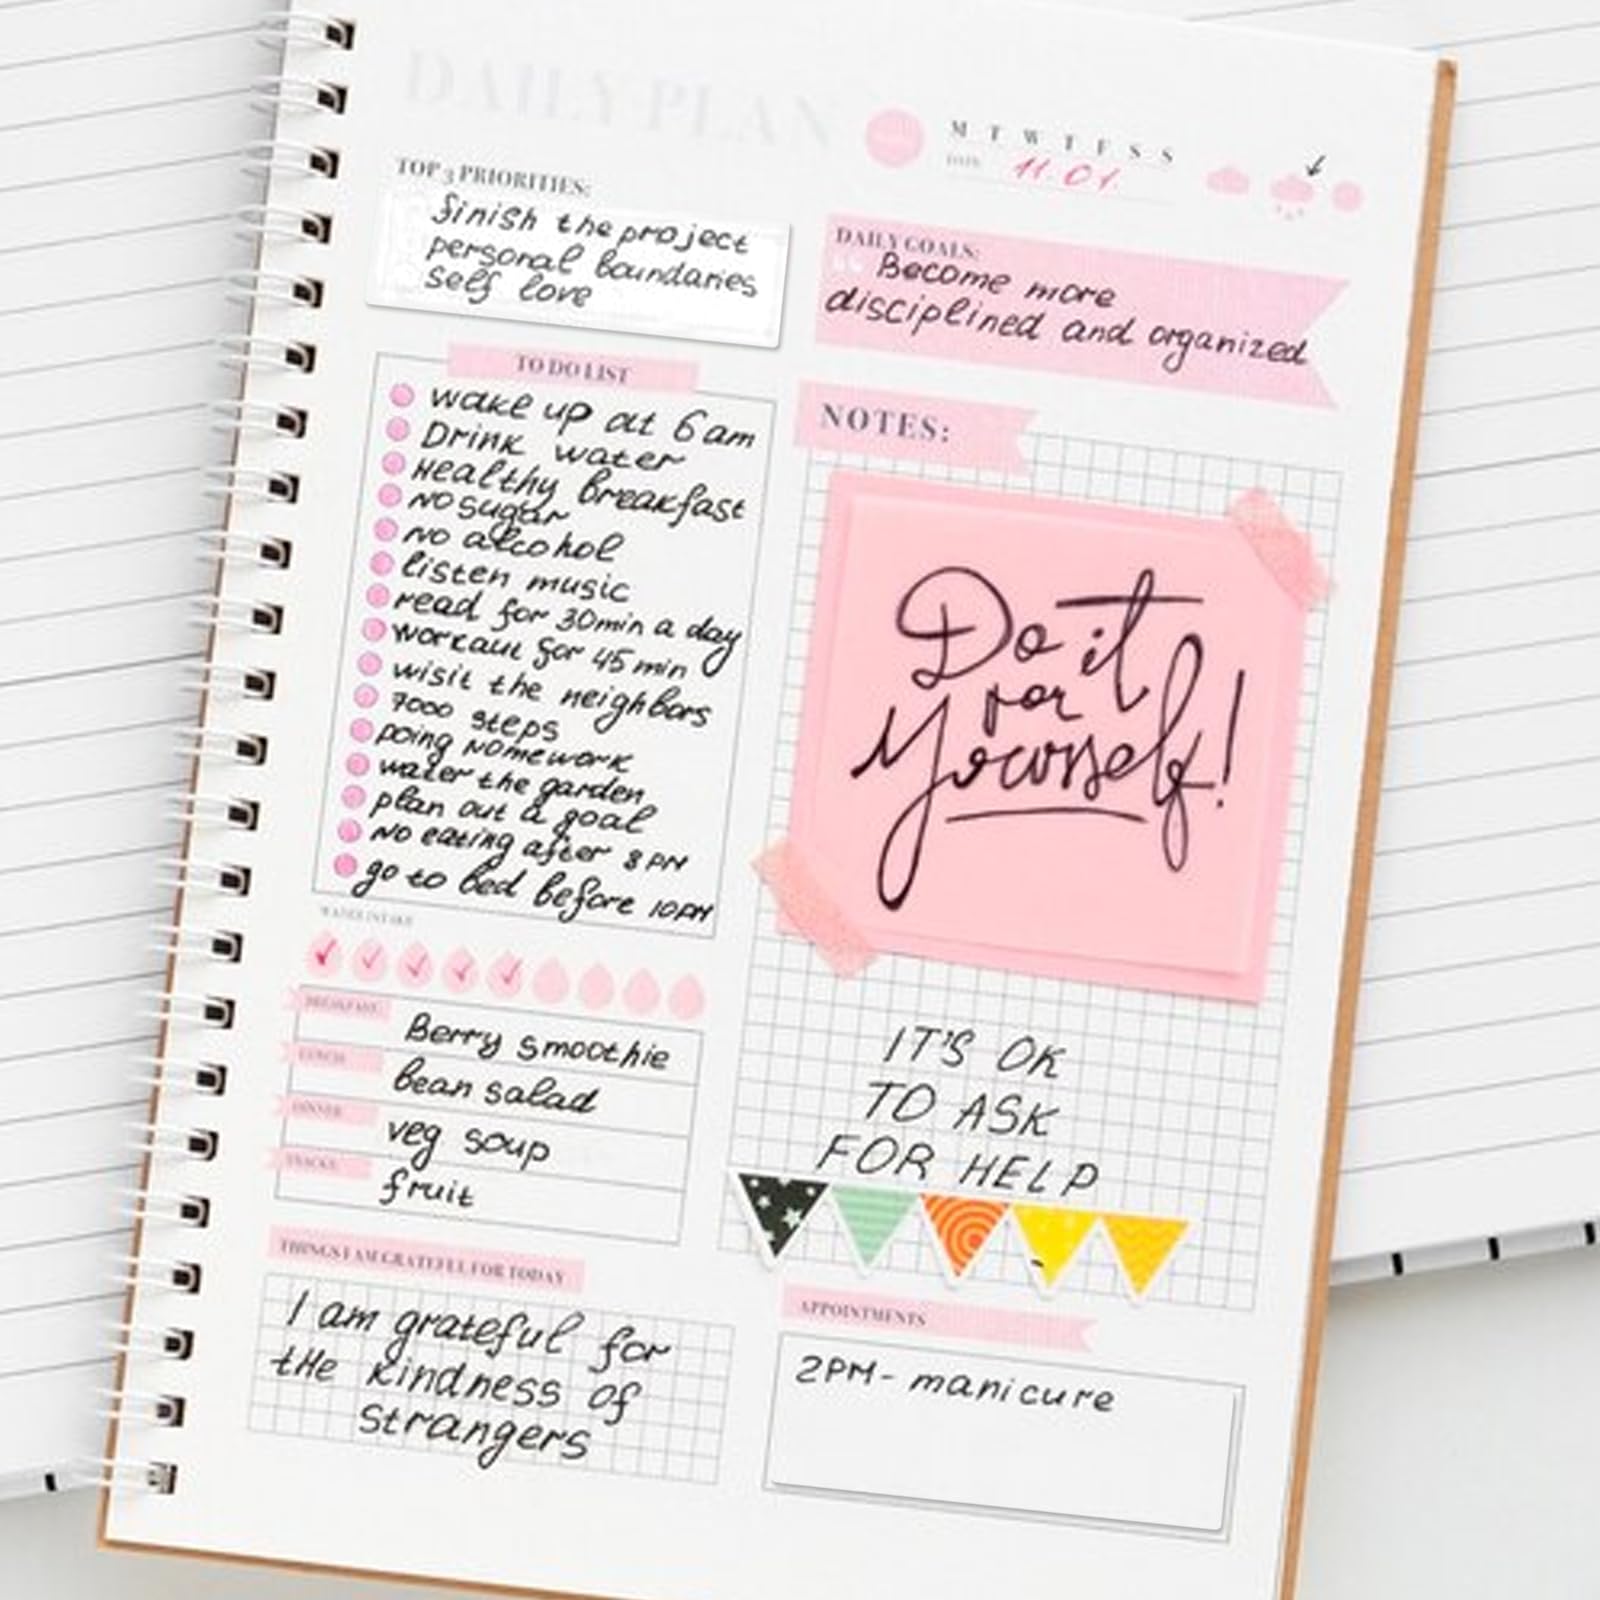 DAILY PLAN
M T W T F S S
DATE 11.01.
TOP 3 PRIORITIES:
finish the project
personal boundaries
self love
DAILY GOALS:
Become more
disciplined and organized
TO DO LIST
wake up at 6 am
Drink water
Healthy breakfast
NO sugar
NO alcohol
listen music
read for 30min a day
workout for 45 min
wisit the neighbors
7000 steps
poing nomework
water the garden
plan out a goal
NO eating after 8 PM
go to bed before 10PM
WATER INTAKE
BREAKFAST:
Berry smoothie
LUNCH:
bean salad
DINNER:
veg soup
SNACKS:
fruit
THINGS I AM GRATEFUL FOR TODAY
I am grateful for
the kindness of
strangers
NOTES:
Do it
for
Yourself!
IT'S OK
TO ASK
FOR HELP
APPOINTMENTS
2PM- manicure